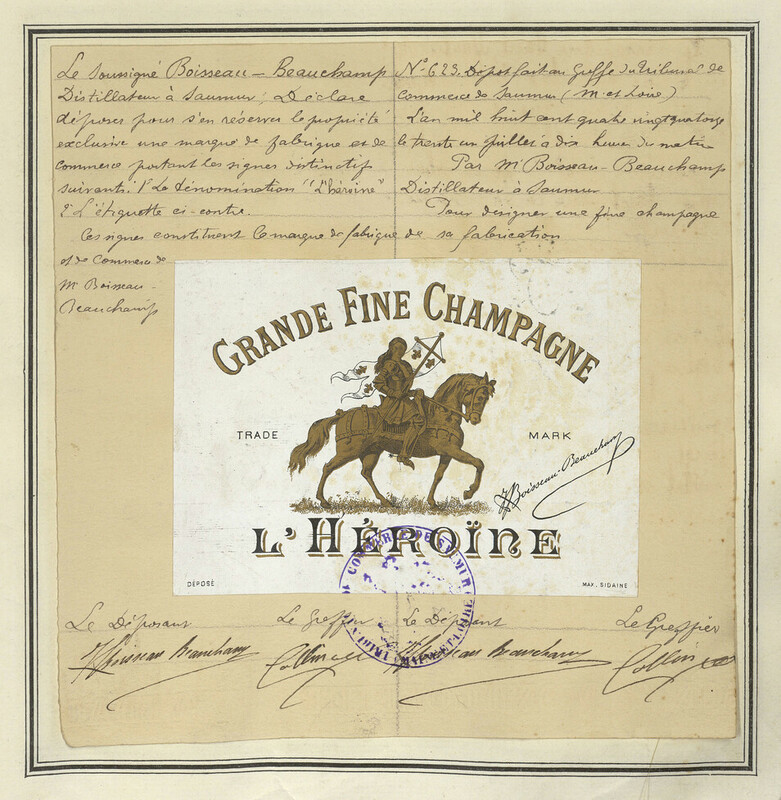 Le Soussigné Boisseau-Beauchamp
Distillateur à Saumur, Déclare
déposer pour s'en réserver la propriété
exclusive une marque de fabrique et de
commerce portant les signes distinctifs
suivants: 1° La dénomination "L'héroïne"
2° L'étiquette ci-contre.
Ces signes constituent la marque de fabrique
et de commerce de
Mr Boisseau-
Beauchamp
N° 623. Dépot fait au Greffe du Tribunal de
Commerce de Saumur (M. et Loire)
L'an mil huit cent quatre vingt quatorze
le trente un Juillet à dix heures du matin
Par Mr Boisseau-Beauchamp
Distillateur à Saumur
Pour désigner une fine champagne
de sa fabrication
GRANDE FINE CHAMPAGNE
TRADE MARK
Boisseau-Beauchamp
L'HÉROÏNE
DÉPOSÉ
MAX. SIDAINE
COMMERCE DE SAUMUR
MAINE-ET-LOIRE
Le Déposant
Le Greffier
Le Déposant
Le Greffier
Boisseau Beauchamp
Collin
Boisseau Beauchamp
Collin